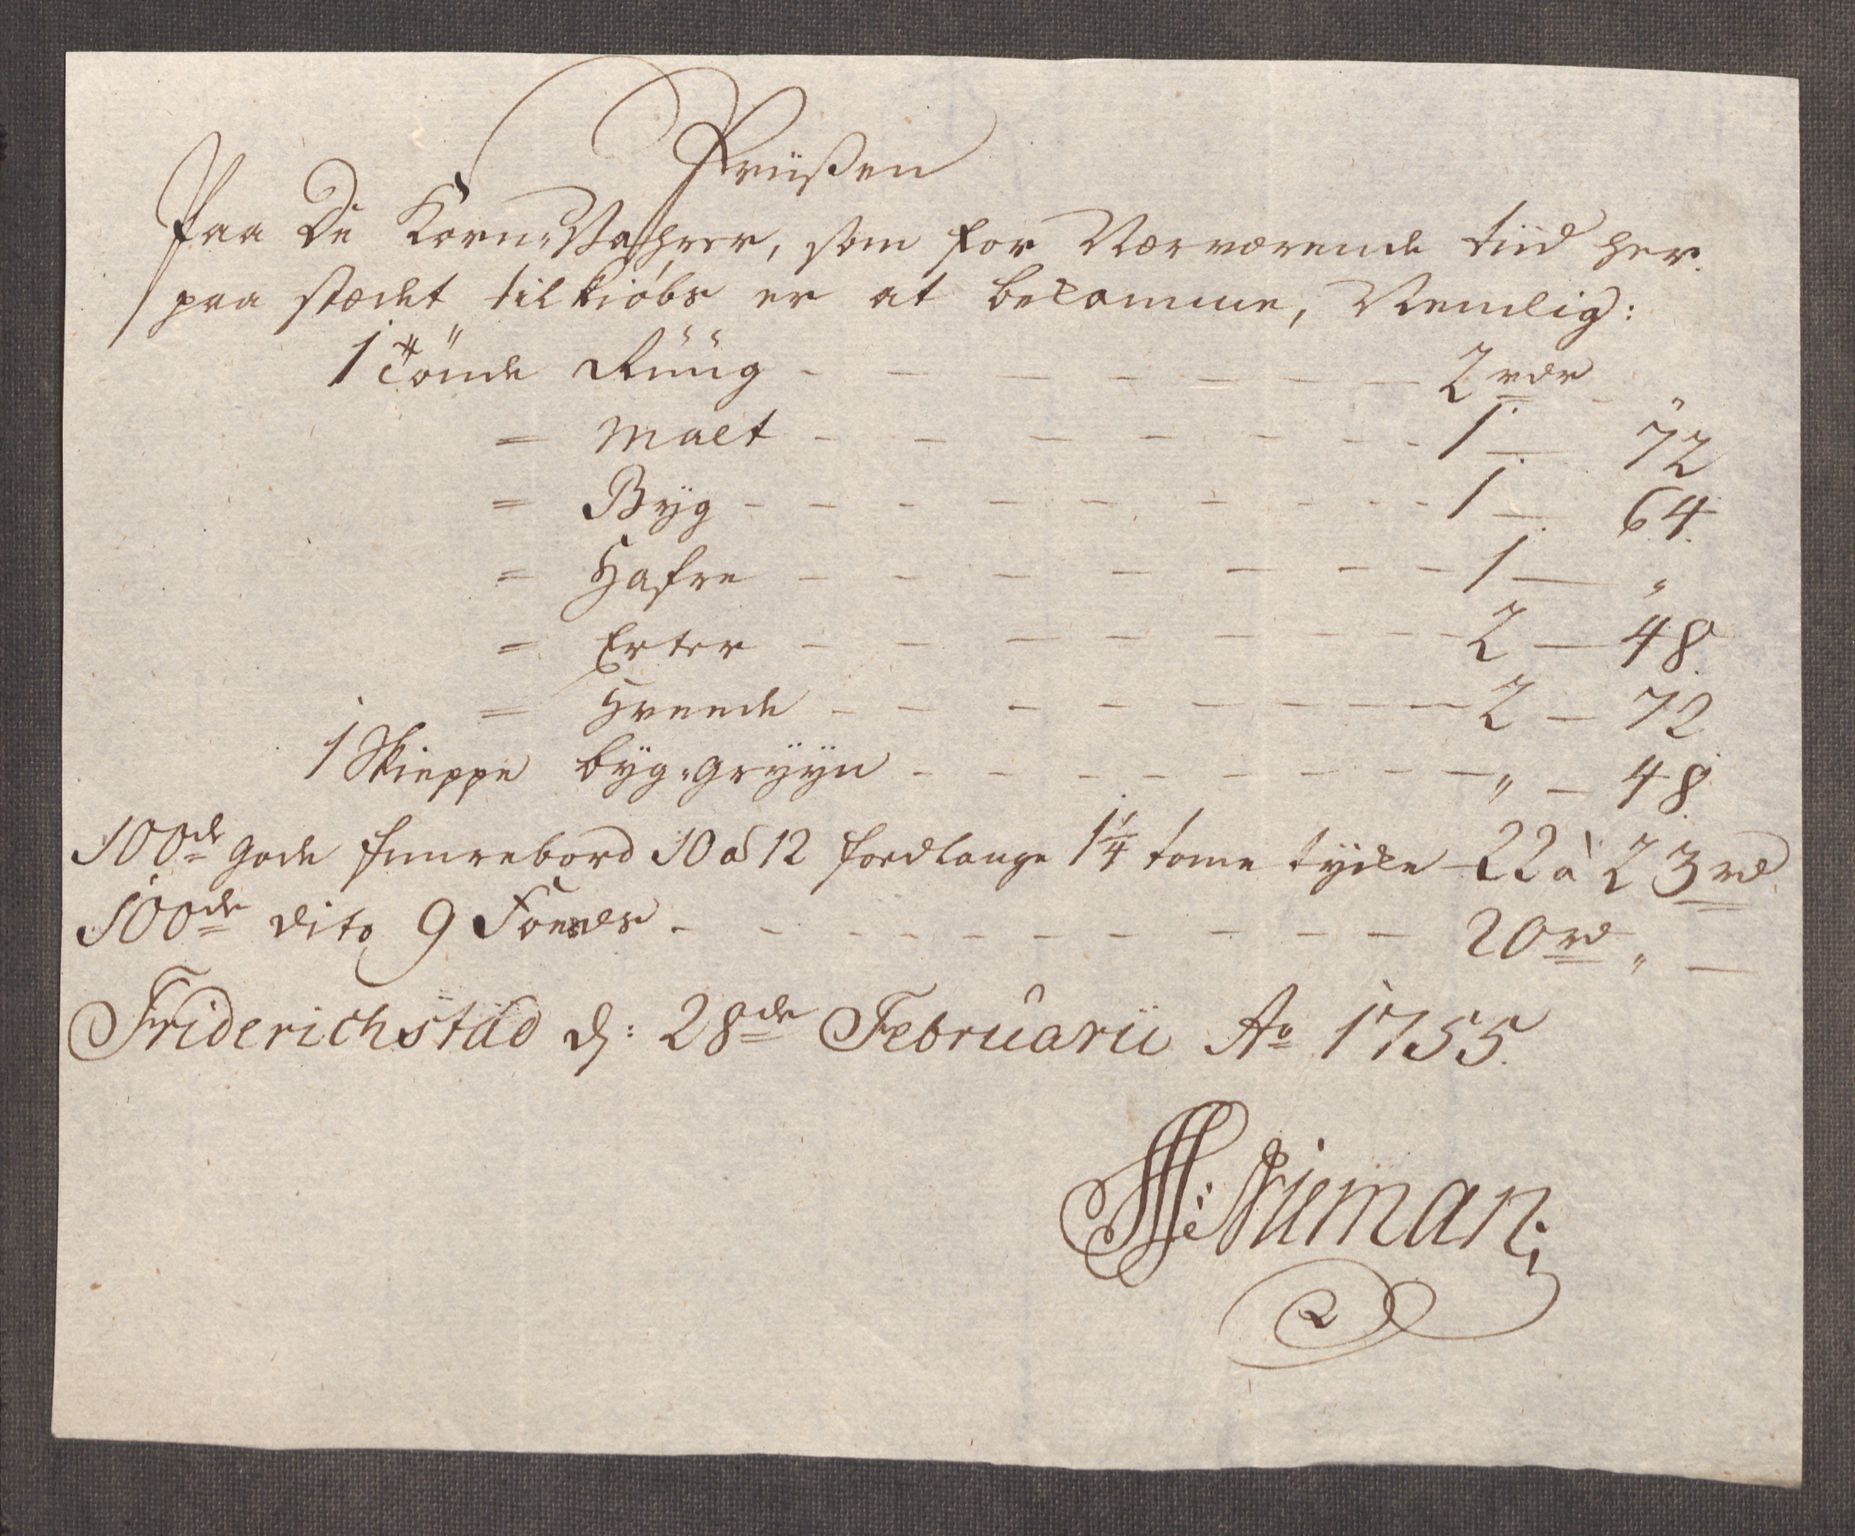 Priißen
Paa De Korn-Vahrer, som for Nærværende tiid her
paa stædet til kiøbs er at bekomme, Nemlig:
1 Tönde Rüüg - - - - - - 2 rdr - "
= Malt - - - - - - 1 — 72
= Byg - - - - - - - 1 — 64
= Hafre - - - - - - 1 — "
= Erter - - - - - - 2 — 48
= Hveede - - - - - - 2 — 72
1 Skieppe byg-gryyn - - - - - - " — 48
100de gode fuurebord 10 a 12 foedlange 1 1/4 tome tycke 22 à 23 rd
100de dito 9 Foeds - - - - - - - 20 rd " —
Friderichstad d: 28de Februarii Ao 1755.
H: Nieman